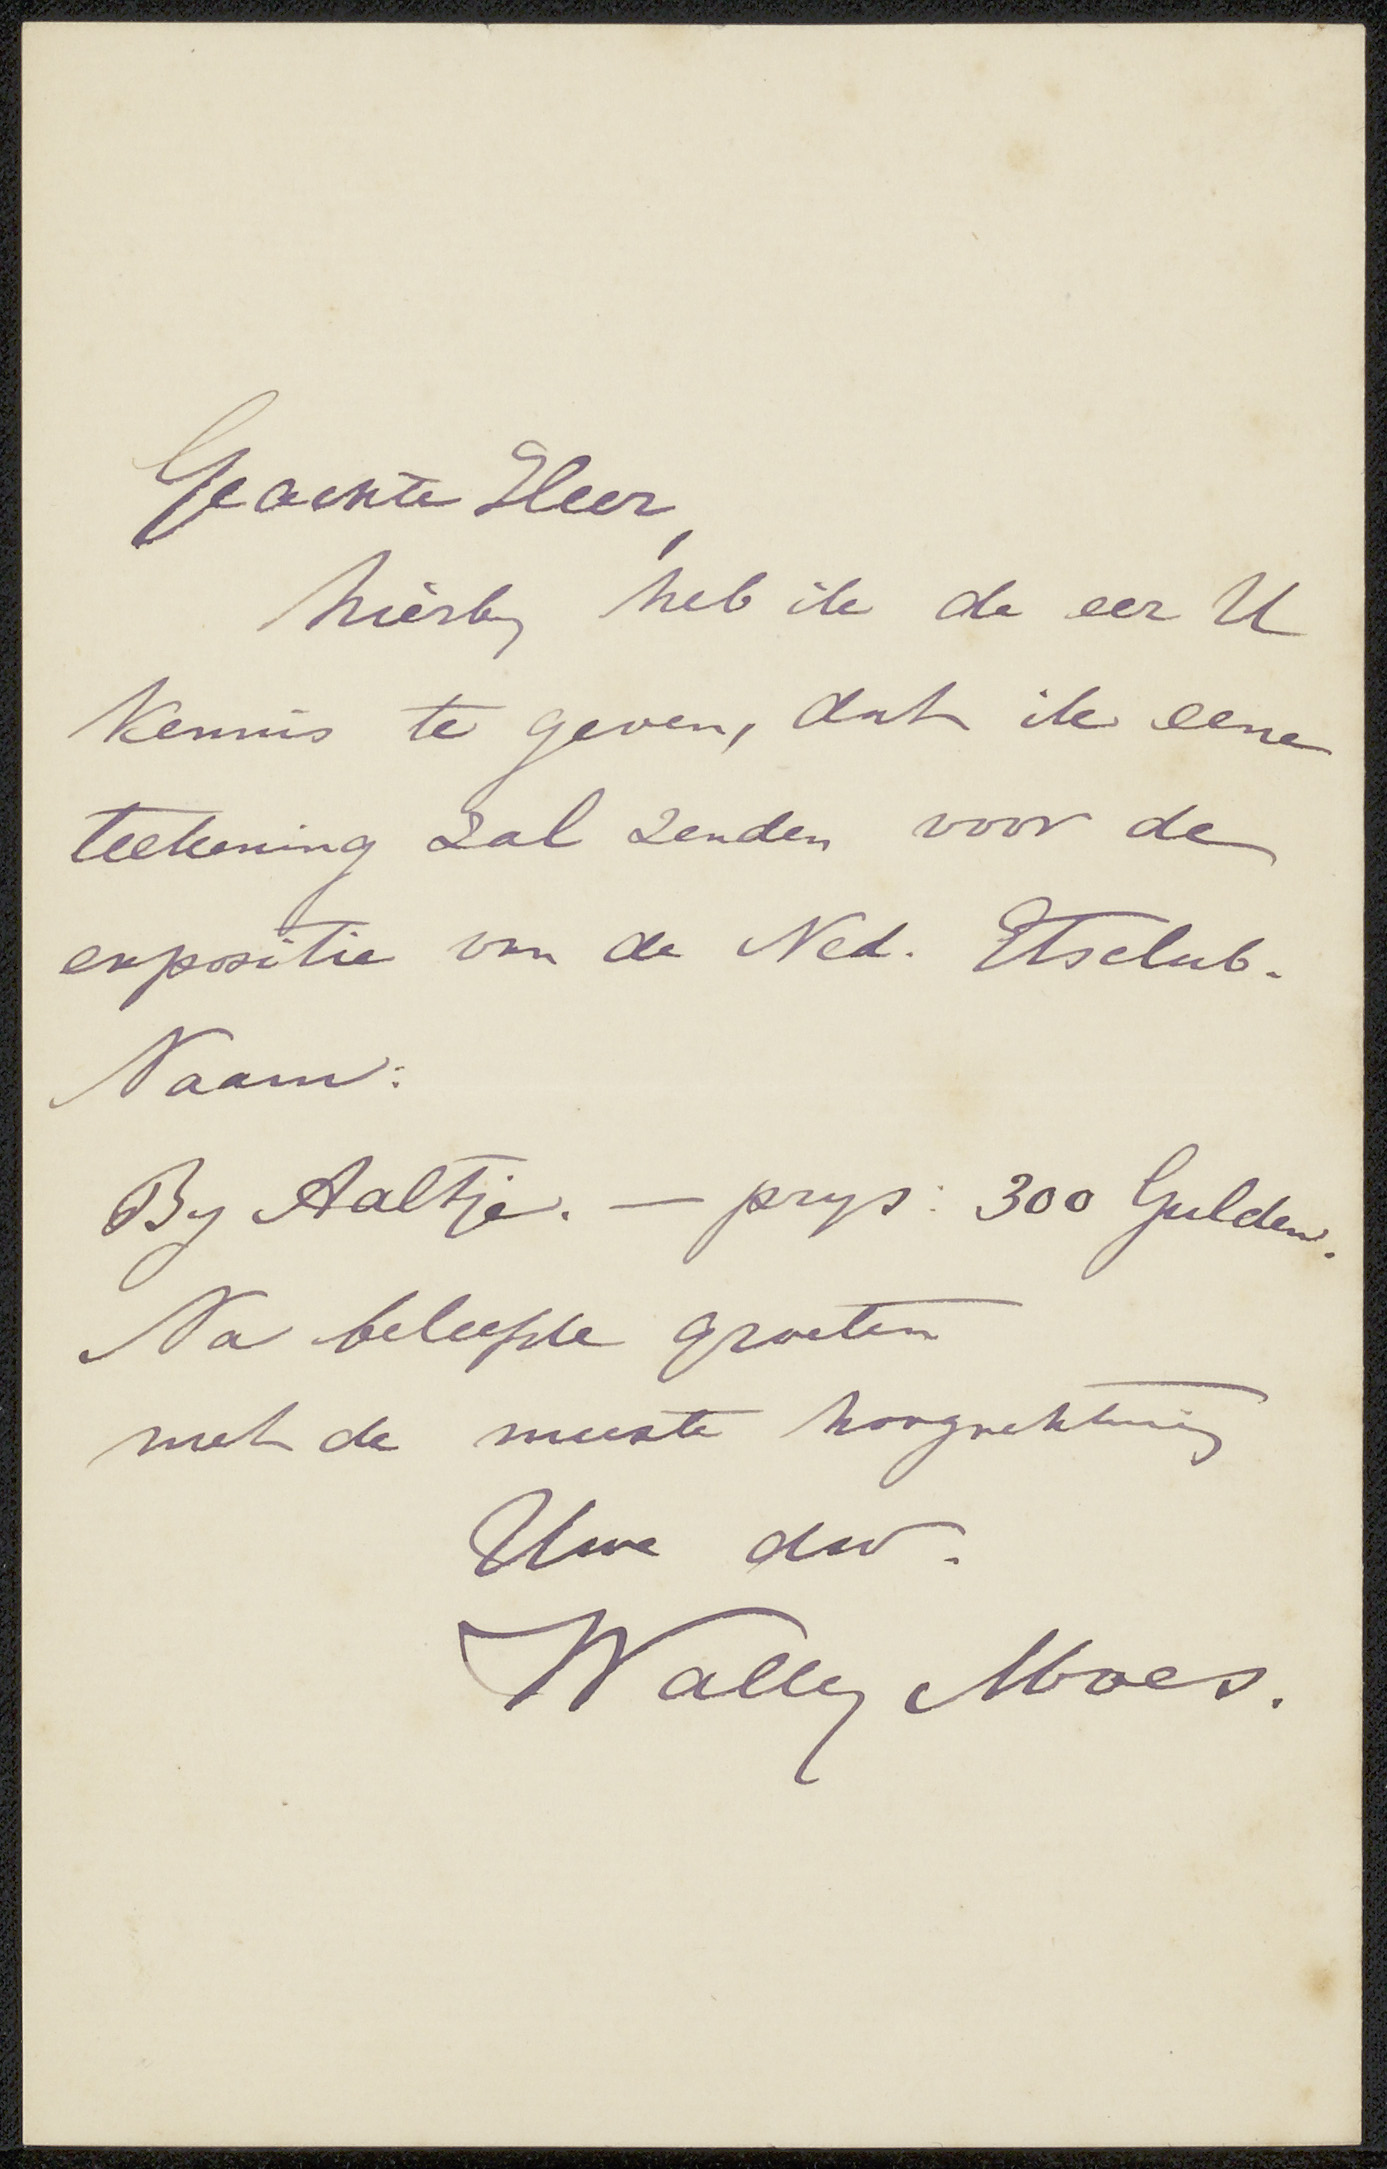 Geachte Heer,
hierby heb ik de eer U
kennis te geven, dat ik eene
teekening zal zenden voor de
expositie van de Ned. Etsclub.
Naam:
By Aaltje. — prys: 300 Gulden.
Na beleefde groeten
met de meeste hoogachting
Uwe dw.
Wally Moes.